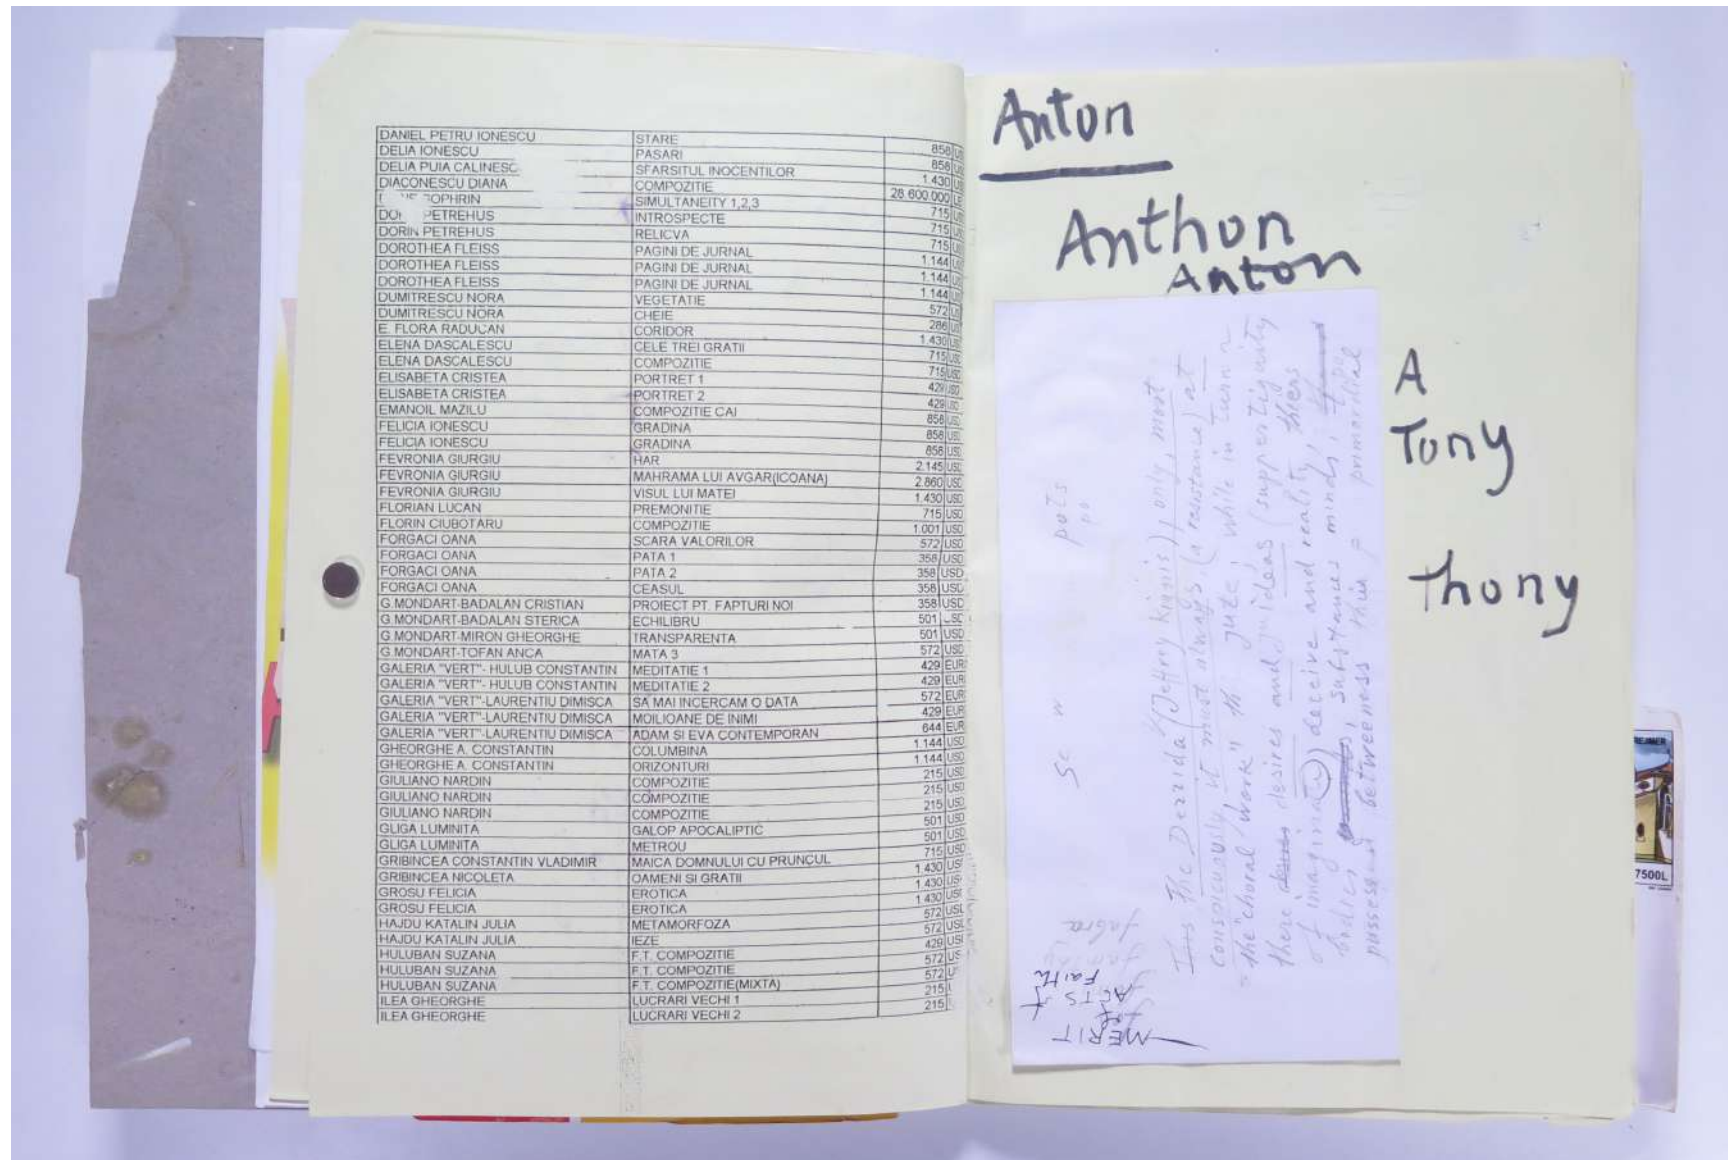 DANIEL PETRU IONESCU STARE 858
DELIA IONESCU PASARI 858
DELIA PUIA CALINESC SFARSITUL INOCENTILOR 1.430
DIACONESCU DIANA COMPOZITIE 28.600.000 LE
OPHRIN SIMULTANEITY 1,2,3 715
PETREHUS INTROSPECTE 715
DORIN PETREHUS RELICVA 715
DOROTHEA FLEISS PAGINI DE JURNAL 1.144
DOROTHEA FLEISS PAGINI DE JURNAL 1.144
DOROTHEA FLEISS PAGINI DE JURNAL 1.144
DUMITRESCU NORA VEGETATIE 572
DUMITRESCU NORA CHEIE 286
E. FLORA RADUCAN CORIDOR 1.430 USD
ELENA DASCALESCU CELE TREI GRATII 715 USD
ELENA DASCALESCU COMPOZITIE 715 USD
ELISABETA CRISTEA PORTRET 1 429 USD
ELISABETA CRISTEA PORTRET 2 429 USD
EMANOIL MAZILU COMPOZITIE CAI 858 USD
FELICIA IONESCU GRADINA 858 USD
FELICIA IONESCU GRADINA 858 USD
FEVRONIA GIURGIU HAR 2.145 USD
FEVRONIA GIURGIU MAHRAMA LUI AVGAR(ICOANA) 2.860 USD
FEVRONIA GIURGIU VISUL LUI MATEI 1.430 USD
FLORIAN LUCAN PREMONITIE 715 USD
FLORIN CIUBOTARU COMPOZITIE 1.001 USD
FORGACI OANA SCARA VALORILOR 572 USD
FORGACI OANA PATA 1 358 USD
FORGACI OANA PATA 2 358 USD
FORGACI OANA CEASUL 358 USD
G.MONDART-BADALAN CRISTIAN PROIECT PT. FAPTURI NOI 358 USD
G.MONDART-BADALAN STERICA ECHILIBRU 501 USD
G.MONDART-MIRON GHEORGHE TRANSPARENTA 501 USD
G.MONDART-TOFAN ANCA MATA 3 572 USD
GALERIA "VERT"- HULUB CONSTANTIN MEDITATIE 1 429 EUR
GALERIA "VERT"- HULUB CONSTANTIN MEDITATIE 2 429 EUR
GALERIA "VERT"-LAURENTIU DIMISCA SA MAI INCERCAM O DATA 572 EUR
GALERIA "VERT"-LAURENTIU DIMISCA MOILIOANE DE INIMI 429 EUR
GALERIA "VERT"-LAURENTIU DIMISCA ADAM SI EVA CONTEMPORAN 644 EUR
GHEORGHE A. CONSTANTIN COLUMBINA 1.144 USD
GHEORGHE A. CONSTANTIN ORIZONTURI 1.144 USD
GIULIANO NARDIN COMPOZITIE 215 USD
GIULIANO NARDIN COMPOZITIE 215 USD
GIULIANO NARDIN COMPOZITIE 215 USD
GLIGA LUMINITA GALOP APOCALIPTIC 501 USD
GLIGA LUMINITA METROU 501 USD
GRIBINCEA CONSTANTIN VLADIMIR MAICA DOMNULUI CU PRUNCUL 715 USD
GRIBINCEA NICOLETA OAMENI SI GRATII 1.430 USD
GROSU FELICIA EROTICA 1.430
GROSU FELICIA EROTICA 1.430
HAJDU KATALIN JULIA METAMORFOZA 572
HAJDU KATALIN JULIA IEZE 572
HULUBAN SUZANA F.T. COMPOZITIE 429
HULUBAN SUZANA F.T. COMPOZITIE 572
HULUBAN SUZANA F.T. COMPOZITIE(MIXTA) 572
ILEA GHEORGHE LUCRARI VECHI 1 215
ILEA GHEORGHE LUCRARI VECHI 2 215
Anton
Anthon
Anton
A
Tony
thony
pots
po
sc w
The Derrida (Jeffry Kipnis) only, must
conspicuously it must always (a resistance) at
the "choral work" while in turn
there desires and ideas (support
of imagina deceive and reality, theirs
bodies, substances minds,
possess betweenness this primordial
MERIT
ACTS of
Faith
7500L